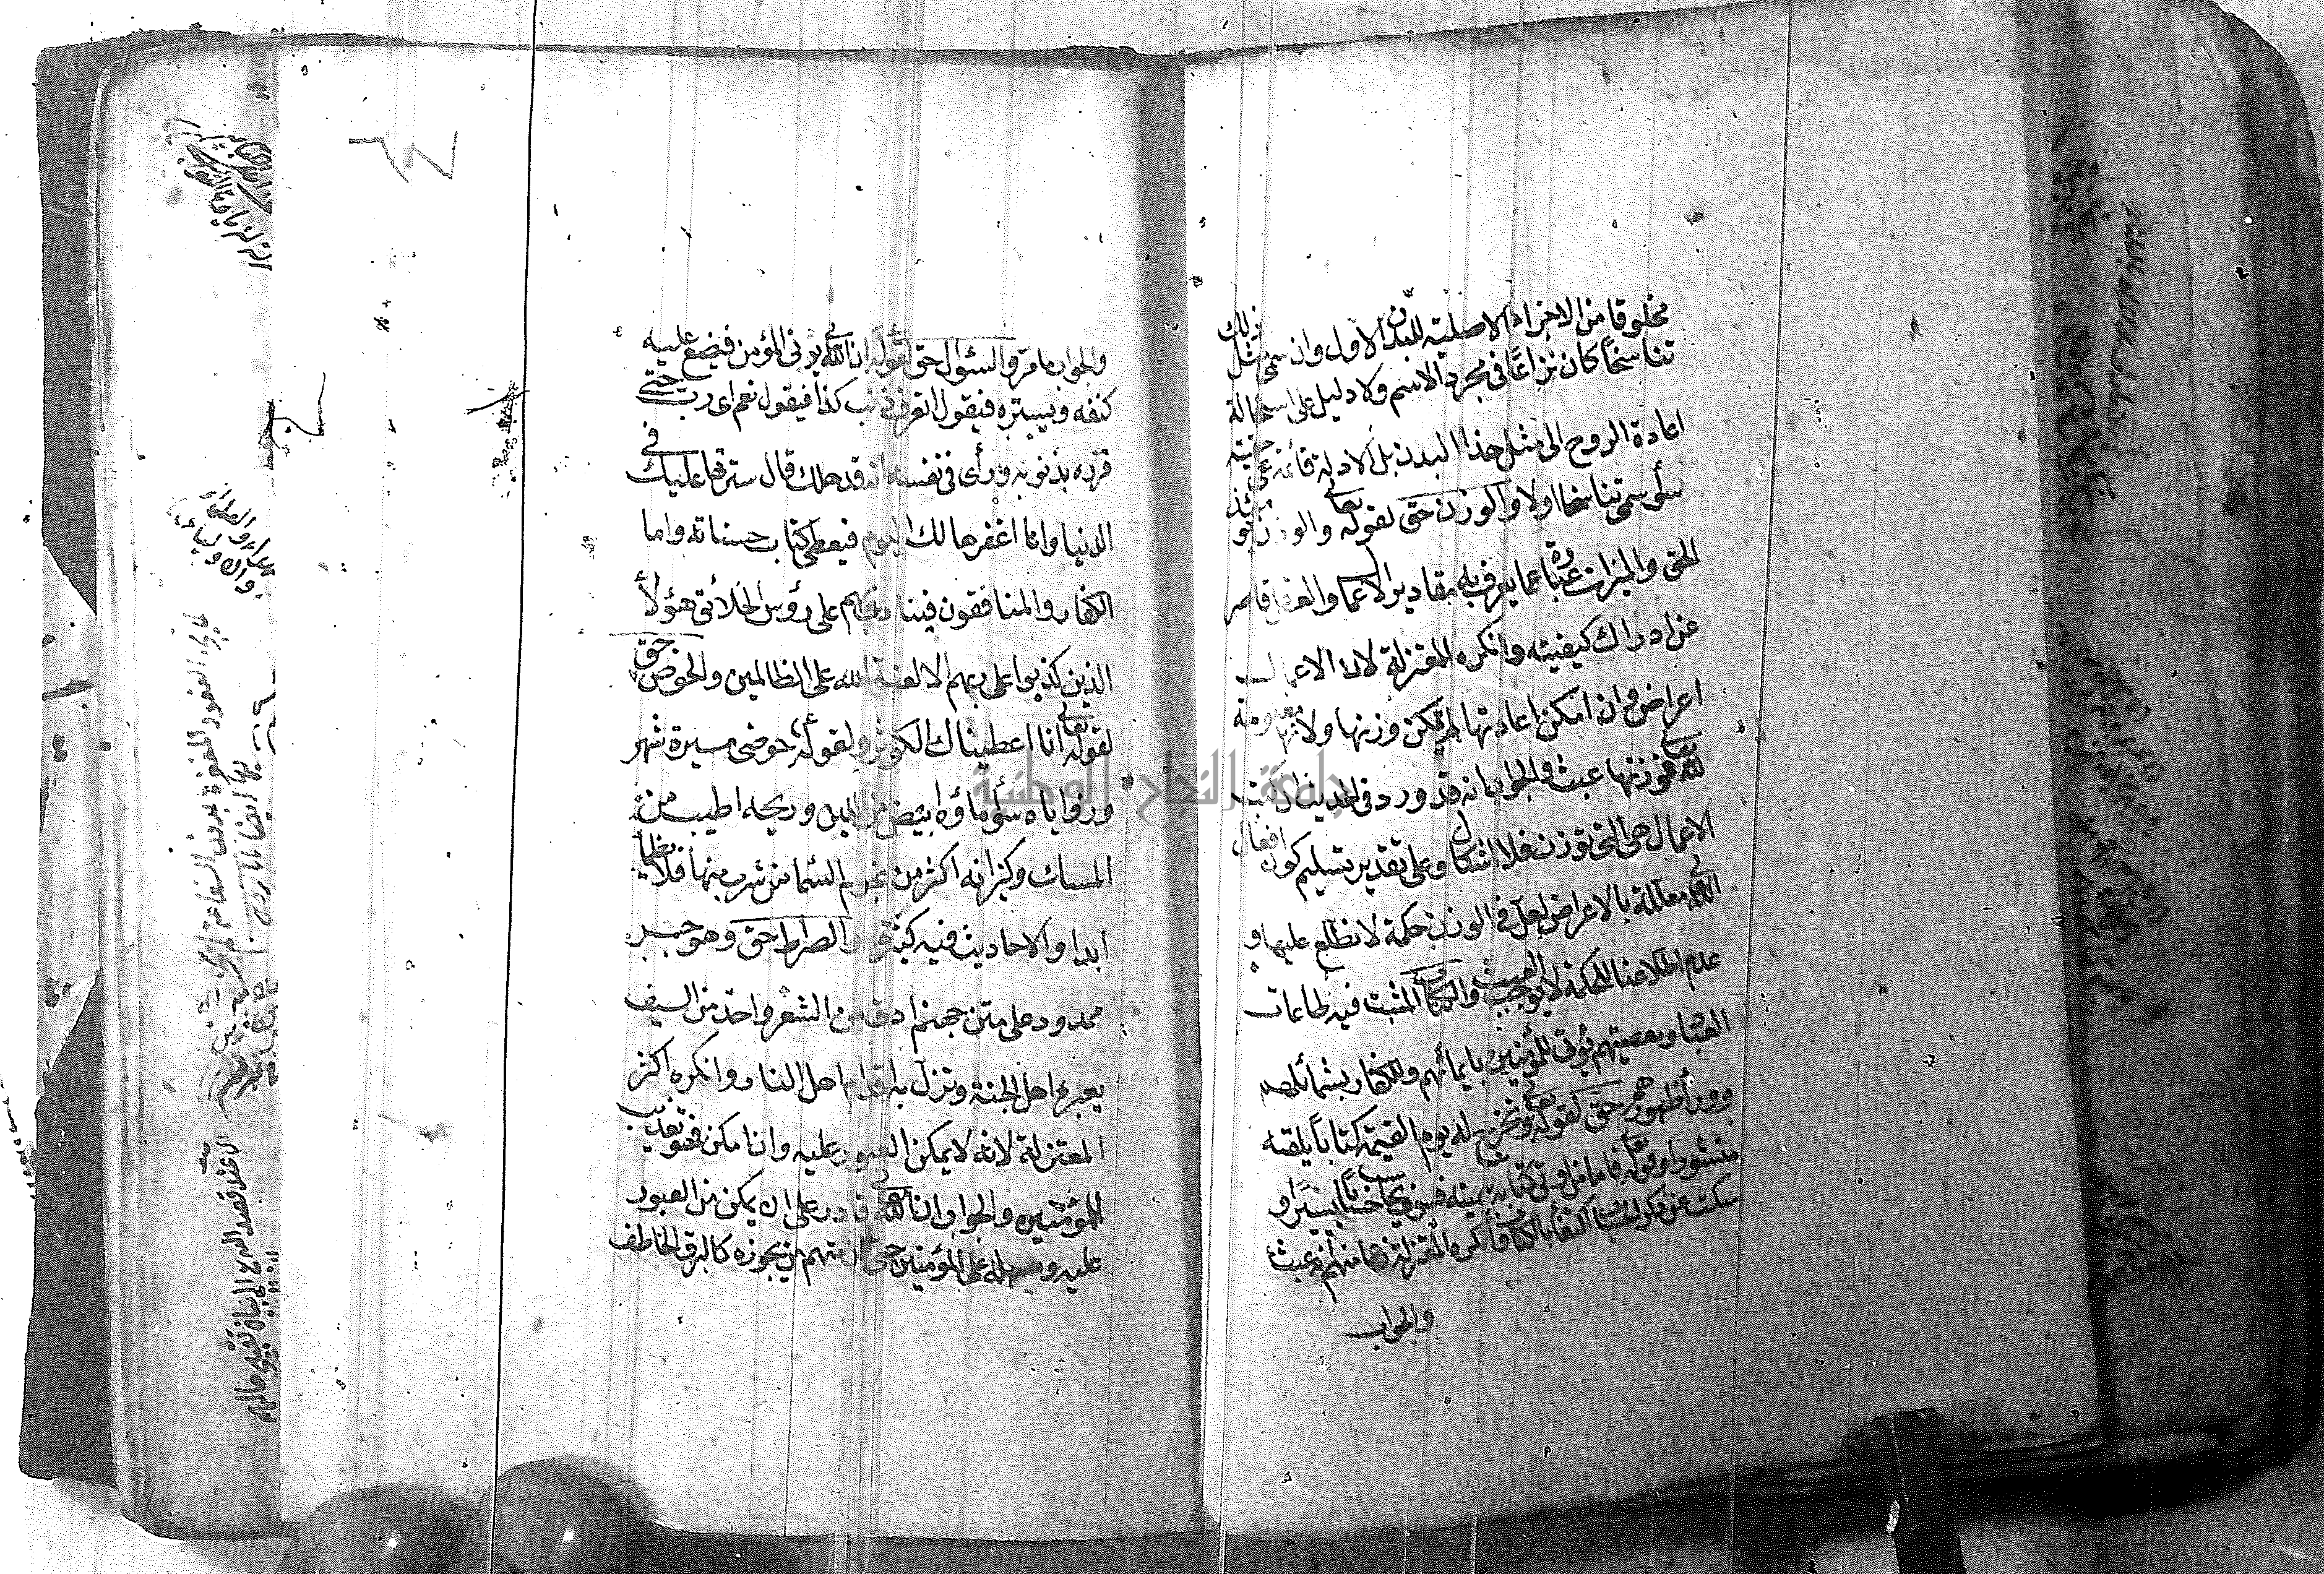 مخلوقا من الاجزاء الاصلية للبدن الاول وان سمي مثل ذلك
تناسخا كان نزاعًا في مجرد الاسم ولا دليل على استحالة
اعادة الروح الى مثل هذا البدن بل الادلة قائمة على حقيته
سواء سمي تناسخا اولا والوزن حق لقوله تعالى والوزن يومئذ
الحق والميزان عبارة عما يعرف به مقادير الاعمال والعقل قاصر
عن ادراك كيفيته وانكره المعتزلة لان الاعمال
اعراض وان امكن اعادتها لم يمكن وزنها ولانها معلومة
لله تعالى فوزنها عبث والجواب انه قد ورد في الحديث ان كتب
الاعمال هي التي توزن فلا اشكال وعلى تقدير تسليم كون افعال
الله تعالى معللة بالاعراض لعل في الوزن حكمة لا نطلع عليها و
عدم اطلاعنا على الحكمة لا يوجب العبث والكتاب المثبت فيه طاعات
العباد ومعصيتهم يؤتى للمؤمنين بايمانهم وللكفار بشمائلهم
ووراء ظهورهم حق كقوله تعالى ونخرج له يوم القيمة كتاباً يلقيه
منشورا وقوله تعالى فاما من اوتي كتابه بيمينه فسوف يحاسب حسابًا يسيرًا و
سكت عن ذكر الحساب اكتفاء بالكتاب وانكره المعتزلة زعما منهم انه عبث
والجواب
والجواب ما مر والسؤال حق لقوله ان الله تعالى يدني المؤمن فيضع عليه
كنفه ويستره فيقول اتعرف ذنب كذا فيقول نعم اي رب حتى
قرره بذنوبه ورأى في نفسه انه قد هلك قال سترتها عليك في
الدنيا وانا اغفرها لك اليوم فيعطى كتاب حسناته واما
الكفار والمنافقون فينادى بهم على رؤس الخلائق هؤلاء
الذين كذبوا على ربهم الا لعنة الله على الظالمين والحوض حق
لقوله تعالى انا اعطيناك الكوثر ولقوله حوضي مسيرة شهر
وزواياه سواء ماؤه ابيض من اللبن وريحه اطيب من
المسك وكيزانه اكثر من نجوم السماء من شرب منها فلا يظمأ
ابدا والاحاديث فيه كثيرة والصراط حق وهو جسر
ممدود على متن جهنم ادق من الشعر واحد من السيف
يعبره اهل الجنة وتزل به اقدام اهل النار وانكره اكثر
المعتزلة لانه لا يمكن العبور عليه وان امكن فهو تعذيب
للمؤمنين والجواب ان الله تعالى قادر على ان يمكن من العبور
عليه ويسهله على المؤمنين حتى ان منهم من يجوزه كالبرق الخاطف
جامعة النجاح الوطنية